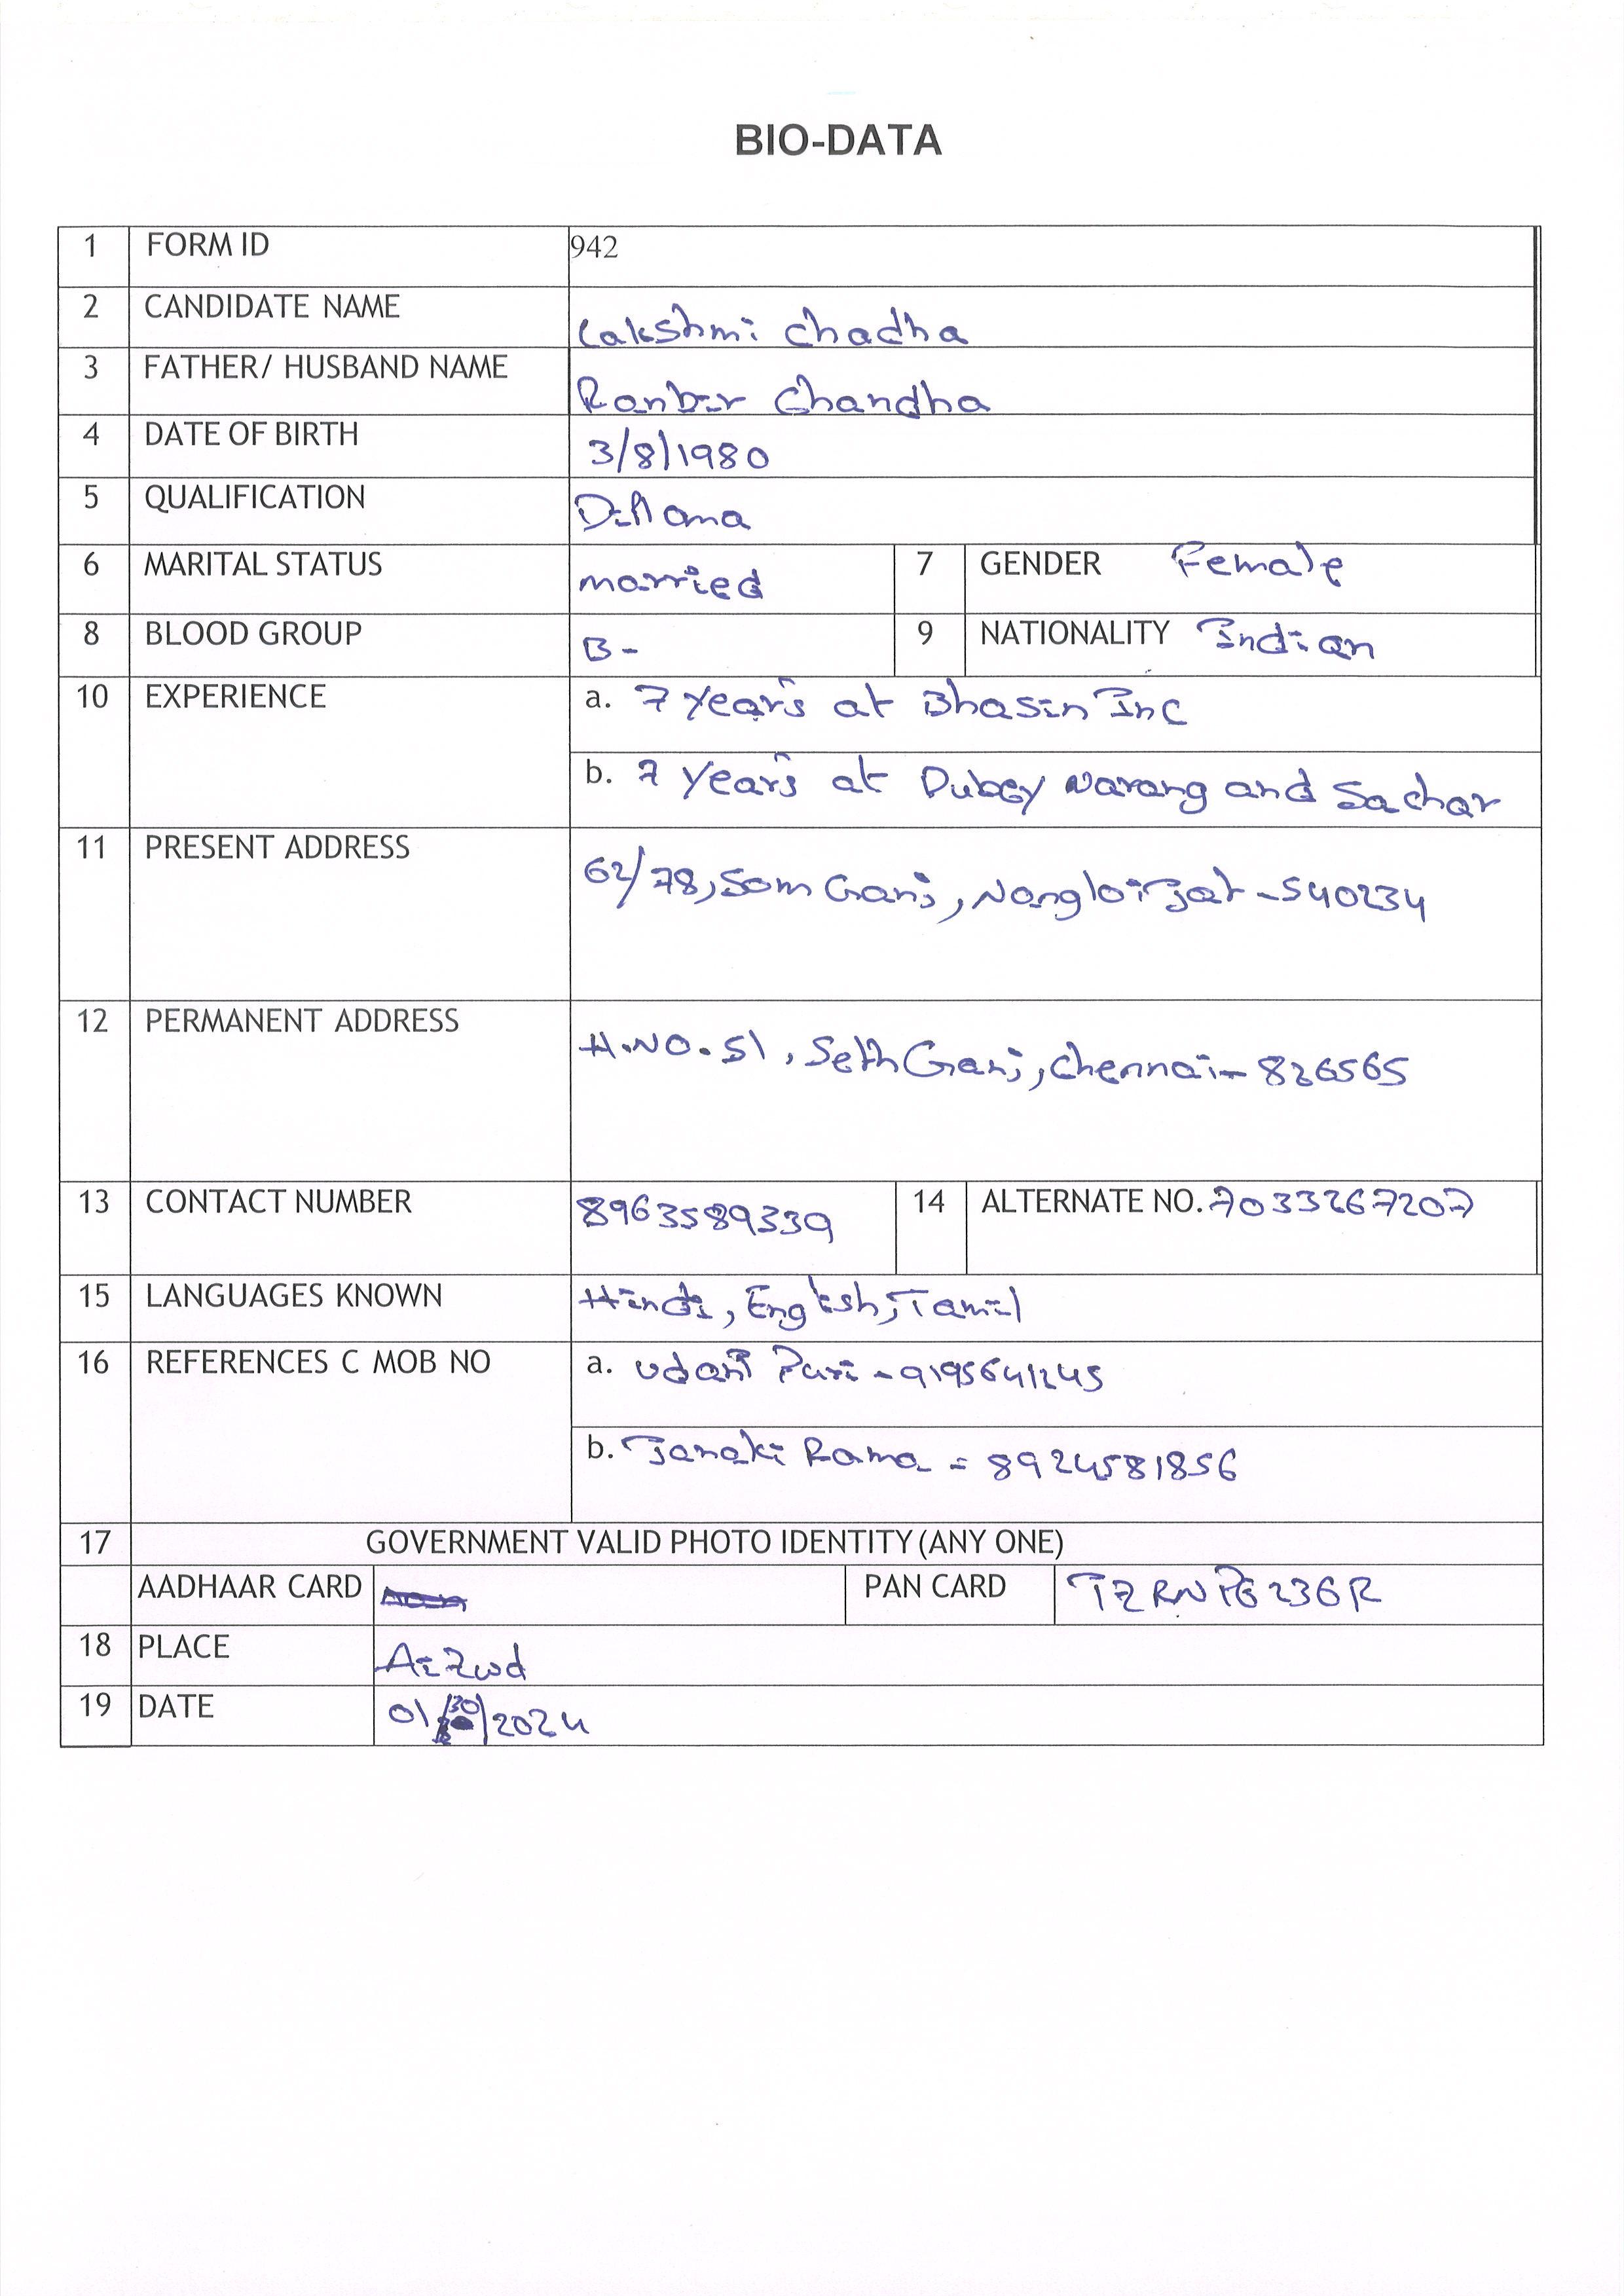 BIO-DATA
1 FORM ID 942
2 CANDIDATE NAME Lakshmi Chadha
3 FATHER/ HUSBAND NAME Ranbir Chandha
4 DATE OF BIRTH 3/8/1980
5 QUALIFICATION
6 MARITAL STATUS married 7 GENDER Female
8 BLOOD GROUP B- 9 NATIONALITY Indian
10 EXPERIENCE a. 7 years at Bhasin Inc
b. 7 Years at Dubey Narang and Sachar
11 PRESENT ADDRESS 62/78, Som Ganj, Nangloi Jat - 540234
12 PERMANENT ADDRESS H.NO. 51, Seth Ganj, Chennai - 826565
13 CONTACT NUMBER 8963589339 14 ALTERNATE NO. 7033267207
15 LANGUAGES KNOWN Hindi, English, Tamil
16 REFERENCES C MOB NO a. Puri - 9195641245
b. Janaki Rama - 8924581856
17 GOVERNMENT VALID PHOTO IDENTITY (ANY ONE)
AADHAAR CARD PAN CARD
18 PLACE
19 DATE 01/30/2024